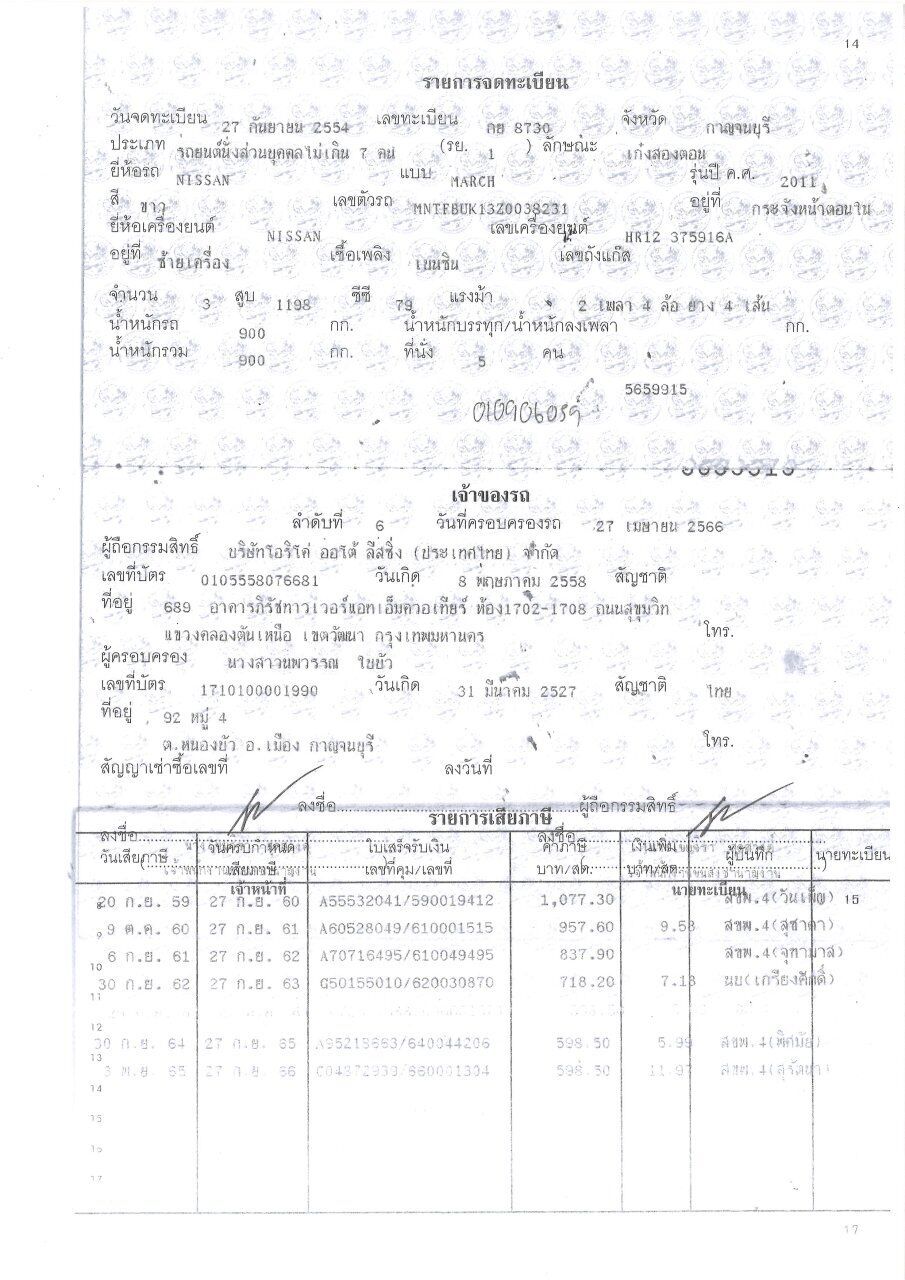 14
รายการจดทะเบียน
วันจดทะเบียน 27 กันยายน 2554 เลขทะเบียน กย 8730 จังหวัด กาญจนบุรี
ประเภท รถยนต์นั่งส่วนบุคคลไม่เกิน 7 คน (รย. 1 ) ลักษณะ เก๋งสองตอน
ยี่ห้อรถ NISSAN แบบ MARCH รุ่นปี ค.ศ. 2011
สี ขาว เลขตัวรถ MNTFBUK13Z0038231 อยู่ที่ กระจังหน้าตอนใน
ยี่ห้อเครื่องยนต์ NISSAN เลขเครื่องยนต์ HR12 375916A
อยู่ที่ ซ้ายเครื่อง เชื้อเพลิง เบนซิน เลขถังแก๊ส
จำนวน 3 สูบ 1198 ซีซี 79 แรงม้า 2 เพลา 4 ล้อ ยาง 4 เส้น
น้ำหนักรถ 900 กก. น้ำหนักบรรทุก/น้ำหนักลงเพลา กก.
น้ำหนักรวม 900 กก. ที่นั่ง 5 คน
5659915
เจ้าของรถ
ลำดับที่ 6 วันที่ครอบครองรถ 27 เมษายน 2566
ผู้ถือกรรมสิทธิ์ บริษัทโอริโค่ ออโต้ ลีสซิ่ง (ประเทศไทย) จำกัด
เลขที่บัตร 0105558076681 วันเกิด 8 พฤษภาคม 2558 สัญชาติ
ที่อยู่ 689 อาคารภิรัชทาวเวอร์แอทเอ็มควอเทียร์ ห้อง1702-1708 ถนนสุขุมวิท
แขวงคลองตันเหนือ เขตวัฒนา กรุงเทพมหานคร โทร.
ผู้ครอบครอง นางสาวนพวรรณ ใบบัว
เลขที่บัตร 1710100001990 วันเกิด 31 มีนาคม 2527 สัญชาติ ไทย
ที่อยู่ 92 หมู่ 4
ต.หนองบัว อ.เมือง กาญจนบุรี โทร.
สัญญาเช่าซื้อเลขที่ ลงวันที่
ลงชื่อ ผู้ถือกรรมสิทธิ์
รายการเสียภาษี
ลงชื่อ ลงชื่อ
วันเสียภาษี วันครบกำหนดเสียภาษี ใบเสร็จรับเงิน เลขที่คุม/เลขที่ ค่าภาษี บาท/สต. เงินเพิ่ม บาท/สต. ผู้บันทึก นายทะเบียน
เจ้าหน้าที่ นายทะเบียน
20 ก.ย. 59 27 ก.ย. 60 A55532041/590019412 1,077.30 สขพ.4(วันเพ็ญ) 15
9 9 ต.ค. 60 27 ก.ย. 61 A60528049/610001515 957.60 9.58 สขพ.4(สุชาดา)
10 6 ก.ย. 61 27 ก.ย. 62 A70716495/610049495 837.90 สขพ.4(จุฑามาส)
11 30 ก.ย. 62 27 ก.ย. 63 G50155010/620030870 718.20 7.18 นบ(เกรียงศักดิ์)
12
30 ก.ย. 64 27 ก.ย. 65 A95213663/640044206 598.50 5.99 สขพ.4(พิศมัย)
13
3 พ.ย. 65 27 ก.ย. 66 C04872933/660001304 598.50 11.97 สขพ.4(สุรัตนา)
14
15
16
17
17